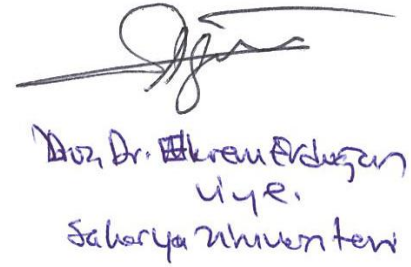 Doç. Dr. Ekrem Erdoğan
üye.
Sakarya Üniversitesi